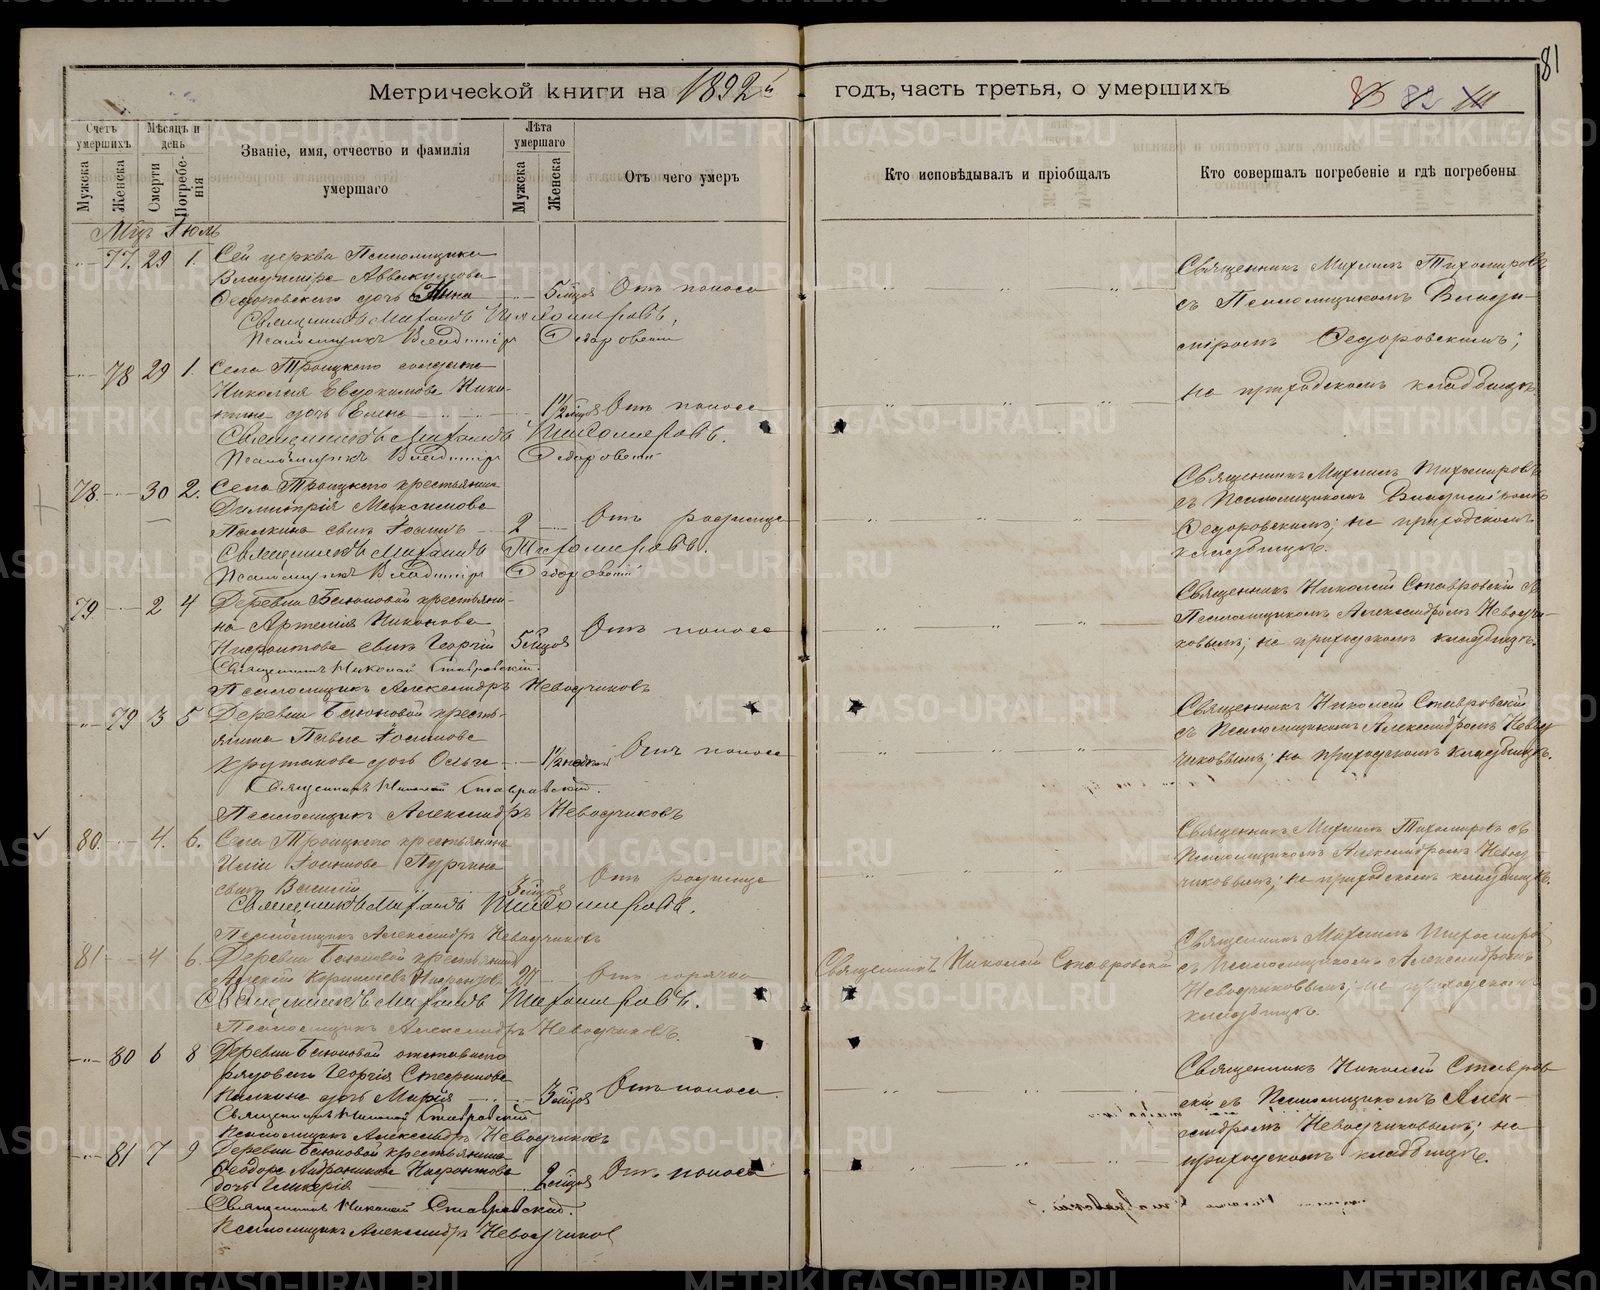 81
Метрической книги на 1892й годъ, часть третья, о умершихъ
82
Счетъ умершихъ
Мѣсяцъ и день
Званіе, имя, отчество и фамилія умершаго
Лѣта умершаго
Отъ чего умеръ
Кто исповѣдывалъ и пріобщалъ
Кто совершалъ погребеніе и гдѣ погребены
Мужска
Женска
Смерти
Погребенія
Мужска
Женска
Мцъ Іюль
77. 29 1. Сей церкви Псаломщика
Владиміра Аввакумова
Ѳедоровскаго дочь Нина 5 м̃цовъ Отъ поноса
Священникъ Михаилъ Тихомировъ.
Псаломщикъ Владиміръ Ѳедоровскій
Священникъ Михаилъ Тихомировъ
съ Псаломщикомъ Влади-
міромъ Ѳедоровскимъ;
на приходскомъ кладбищѣ
78 29 1. Села Троицкаго солдата
Николая Евдокимова Ники-
тина дочь Елена 1½ м̃цов Отъ поноса
Священникъ Михаилъ Тихомировъ.
Псаломщикъ Владиміръ Ѳедоровскій
78. 30 2. Села Троицкаго крестьянина
Димитрія Максимова
Палкина сынъ Іоаннъ 2 Отъ родимца
Священникъ Михаилъ Тихомировъ.
Псаломщикъ Владиміръ Ѳедоровскій
Священникъ Михаилъ Тихомировъ
съ Псаломщикомъ Владиміромъ
Ѳедоровскимъ; на приходскомъ
кладбищѣ.
79. 2 4 Деревни крестьяни-
на Артемія Никонова
сынъ Георгій 5 м̃цов Отъ поноса
Священникъ Николай Ставровскій.
Псаломщикъ Александръ Неводчиковъ
Священникъ Николай Ставровскій съ
Псаломщикомъ Александромъ Неводчи-
ковымъ; на приходскомъ кладбищѣ.
79 3 5 Деревни кресть-
янина Павла
дочь Ольга 1½ Отъ поноса
Священникъ Николай Ставровскій.
Псаломщикъ Александръ Неводчиковъ
Священникъ Николай Ставровскій
съ Псаломщикомъ Александромъ Невод-
чиковымъ; на приходскомъ кладбищѣ.
80. 4. 6. Села Троицкаго крестьянина
Иліи
сынъ Василій 3 м̃цов Отъ родимца
Священникъ Михаилъ Тихомировъ.
Псаломщикъ Александръ Неводчиковъ
Священникъ Михаилъ Тихомировъ съ
Псаломщикомъ Александромъ Невод-
чиковымъ; на приходскомъ кладбищѣ.
81 4 6. Деревни крестьянинъ
Алексій Отъ горячки
Священникъ Николай Ставровскій
Священникъ Михаилъ Тихомировъ.
Псаломщикъ Александръ Неводчиковъ.
Священникъ Михаилъ Тихомировъ
съ Псаломщикомъ Александромъ
Неводчиковымъ; на приходскомъ
кладбищѣ.
80 6 8 Деревни отставнаго
рядоваго Георгія Стефанова
Палкина дочь Марія 3 м̃цов Отъ поноса.
Священникъ Николай Ставровскій
Псаломщикъ Александръ Неводчиковъ
Священникъ Николай Ставров-
скій съ Псаломщикомъ Алек-
сандромъ Неводчиковымъ; на
приходскомъ кладбищѣ.
81 7 9 Деревни крестьянина
Ѳеодора Андроникова
дочь Гликерія 2 м̃цов Отъ поноса
Священникъ Николай Ставровскій.
Псаломщикъ Александръ Неводчиков
METRIKI.GASO-URAL.RU